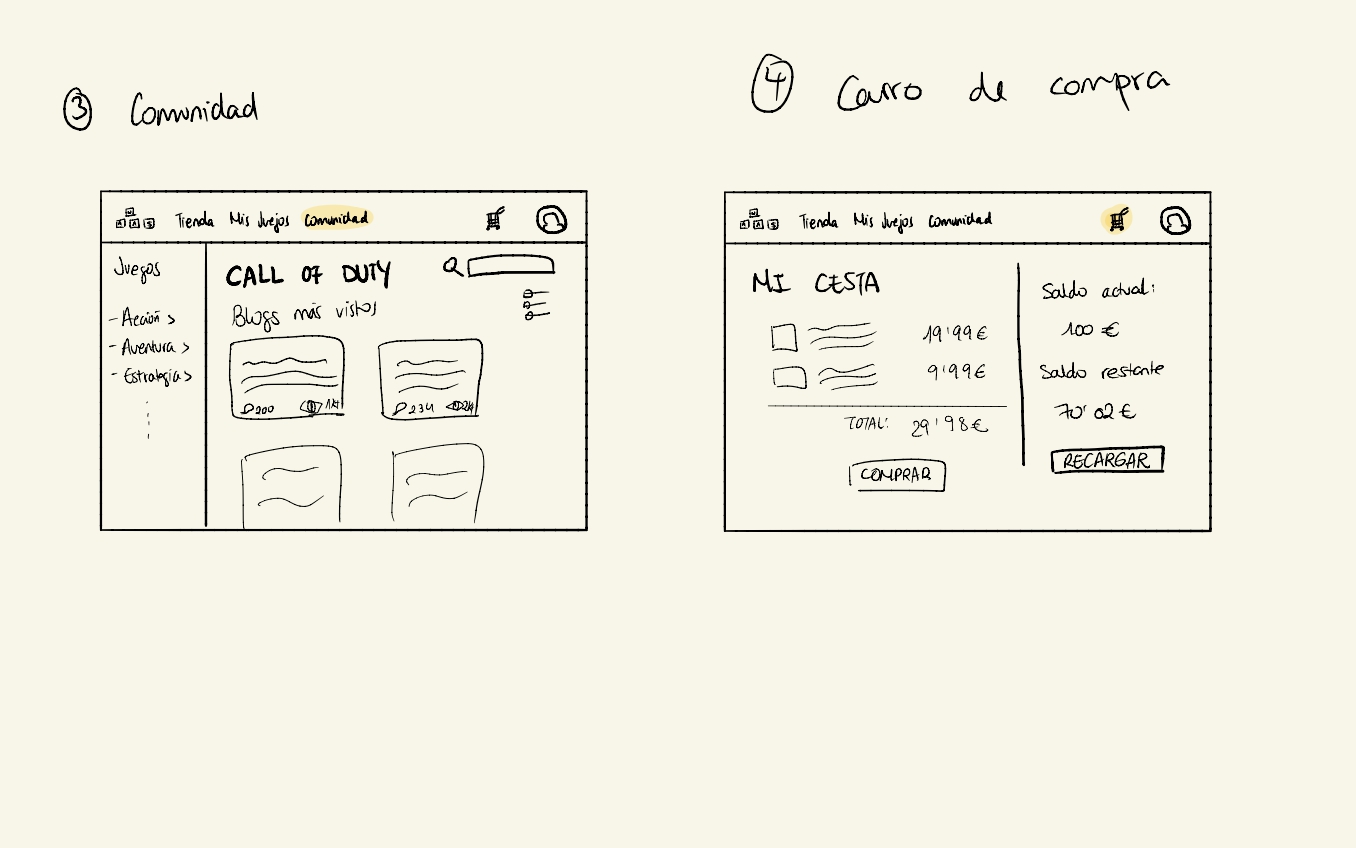 3 Comunidad
4 Carro de compra
Tienda Mis Juejos Comunidad
Juegos
- Acción >
- Aventura >
- Estrategia >
CALL OF DUTY
Blogs más vistos
200
234
Tienda Mis Juejos Comunidad
MI CESTA
19'99€
9'99€
TOTAL: 29'98€
COMPRAR
Saldo actual:
100 €
Saldo restante
70'02€
RECARGAR